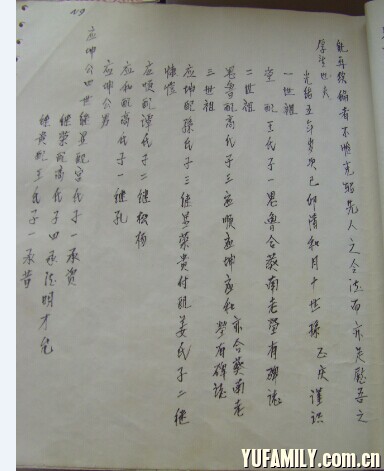 能再续编者不惟光昭先人之令德而亦足慰吾之
厚望也夫
光绪五年岁次己卯清和月十世孙 玉庆 谨识
一世祖
莹 配王氏子一思鲁合葬南老茔有碑志
二世祖
思鲁配高氏子三应顺应坤应和亦合葬南老
茔有碑志
三世祖
应坤配孙氏子三继显荣贵付配姜氏子二继
应顺配谭氏子二继松杨
应和配高氏子一继孔
应坤公男
应坤公四世继显配宋氏子一承资
继荣配高氏子四承法明才
继贵配王氏子一承昔
YUFAMILY.com.cn